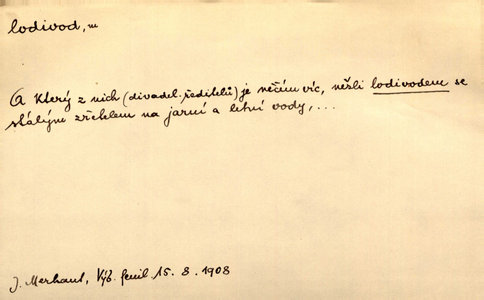 lodivod, m
A který z nich (divadel. ředitelů) je něčím víc, nežli lodivodem se
stálým zřetelem na jarní a letní vody,...
J. Merhaut, Výb. feuil. 15. 8. 1908